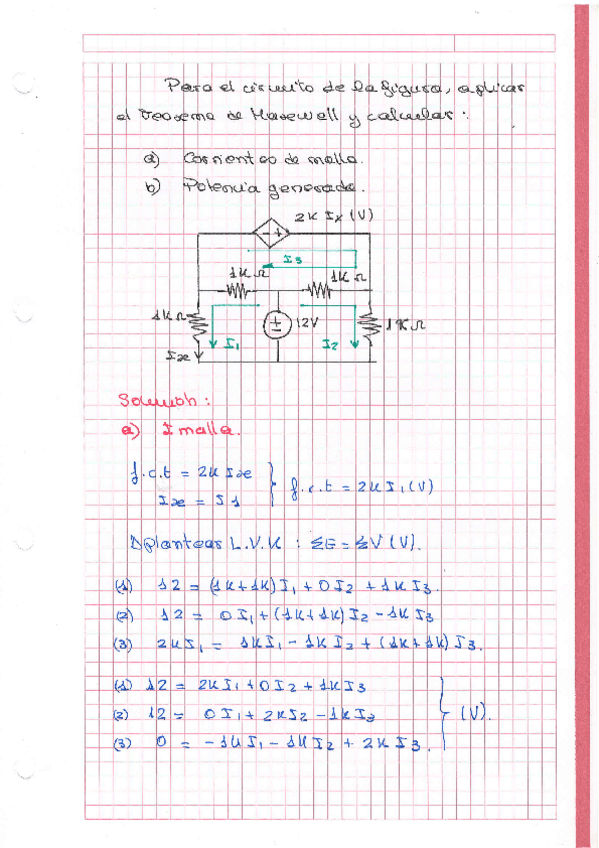 Para el circuito de la figura, aplicar
el teorema de Maxwell y calcular:
a) Corrientes de malla.
b) Potencia generada.
2K Ix (V)
- +
I3
1K Ω
1K Ω
1K Ω
12V
1K Ω
I1
I2
Ix
Solución:
a) I malla.
f.c.t = 2K Ix
Ix = I1
f.c.t = 2K I1 (V)
1) plantear L.V.K : ΣE = ΣV (V).
(1) 12 = (1K+1K) I1 + 0 I2 + 1K I3.
(2) 12 = 0 I1 + (1K+1K) I2 - 1K I3
(3) 2K I1 = 1K I1 - 1K I2 + (1K+1K) I3.
(1) 12 = 2K I1 + 0 I2 + 1K I3
(2) 12 = 0 I1 + 2K I2 - 1K I3
(3) 0 = -1K I1 - 1K I2 + 2K I3.
(V).